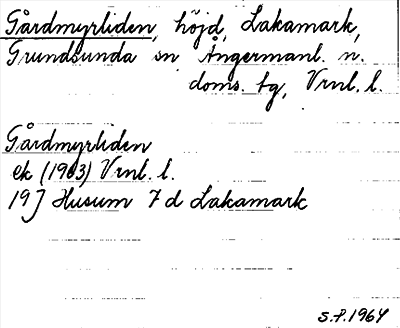 Gårdmyrliden, höjd, Lakamark,
Grundsunda sn Ångermanl. n.
doms. tg, Vrnl. l.
Gårdmyrliden
ek (1963) Vrnl. l.
19J Husum 7 d Lakamark
S.F. 1964